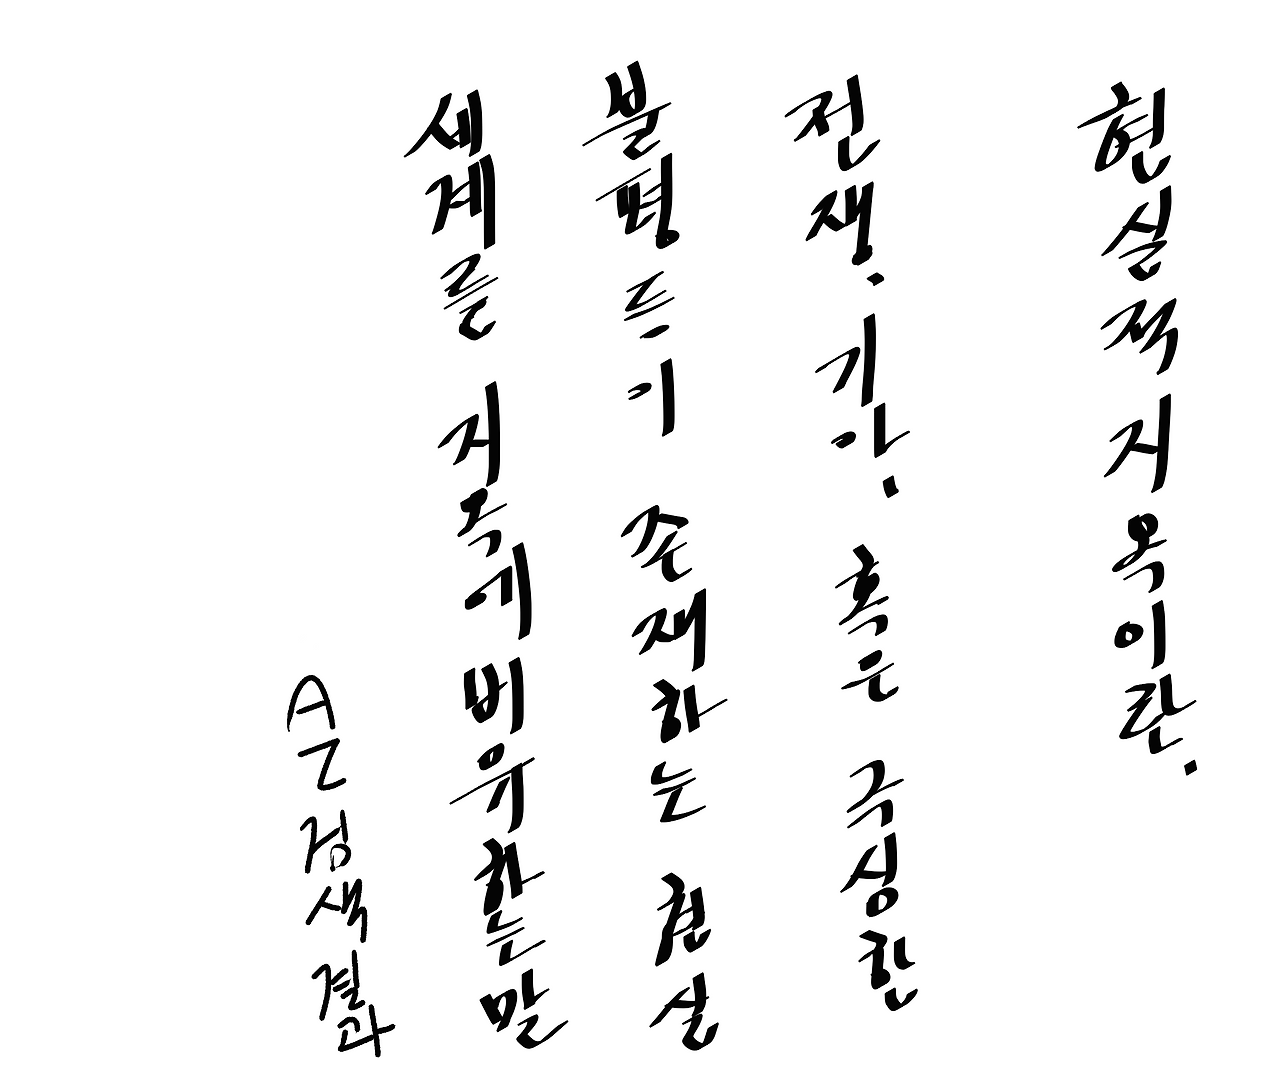 현실적 지옥이란.
전쟁. 기아. 혹은 극심한
불평등이 존재하는 현실
세계를 지옥에 비유하는 말
AI 검색결과